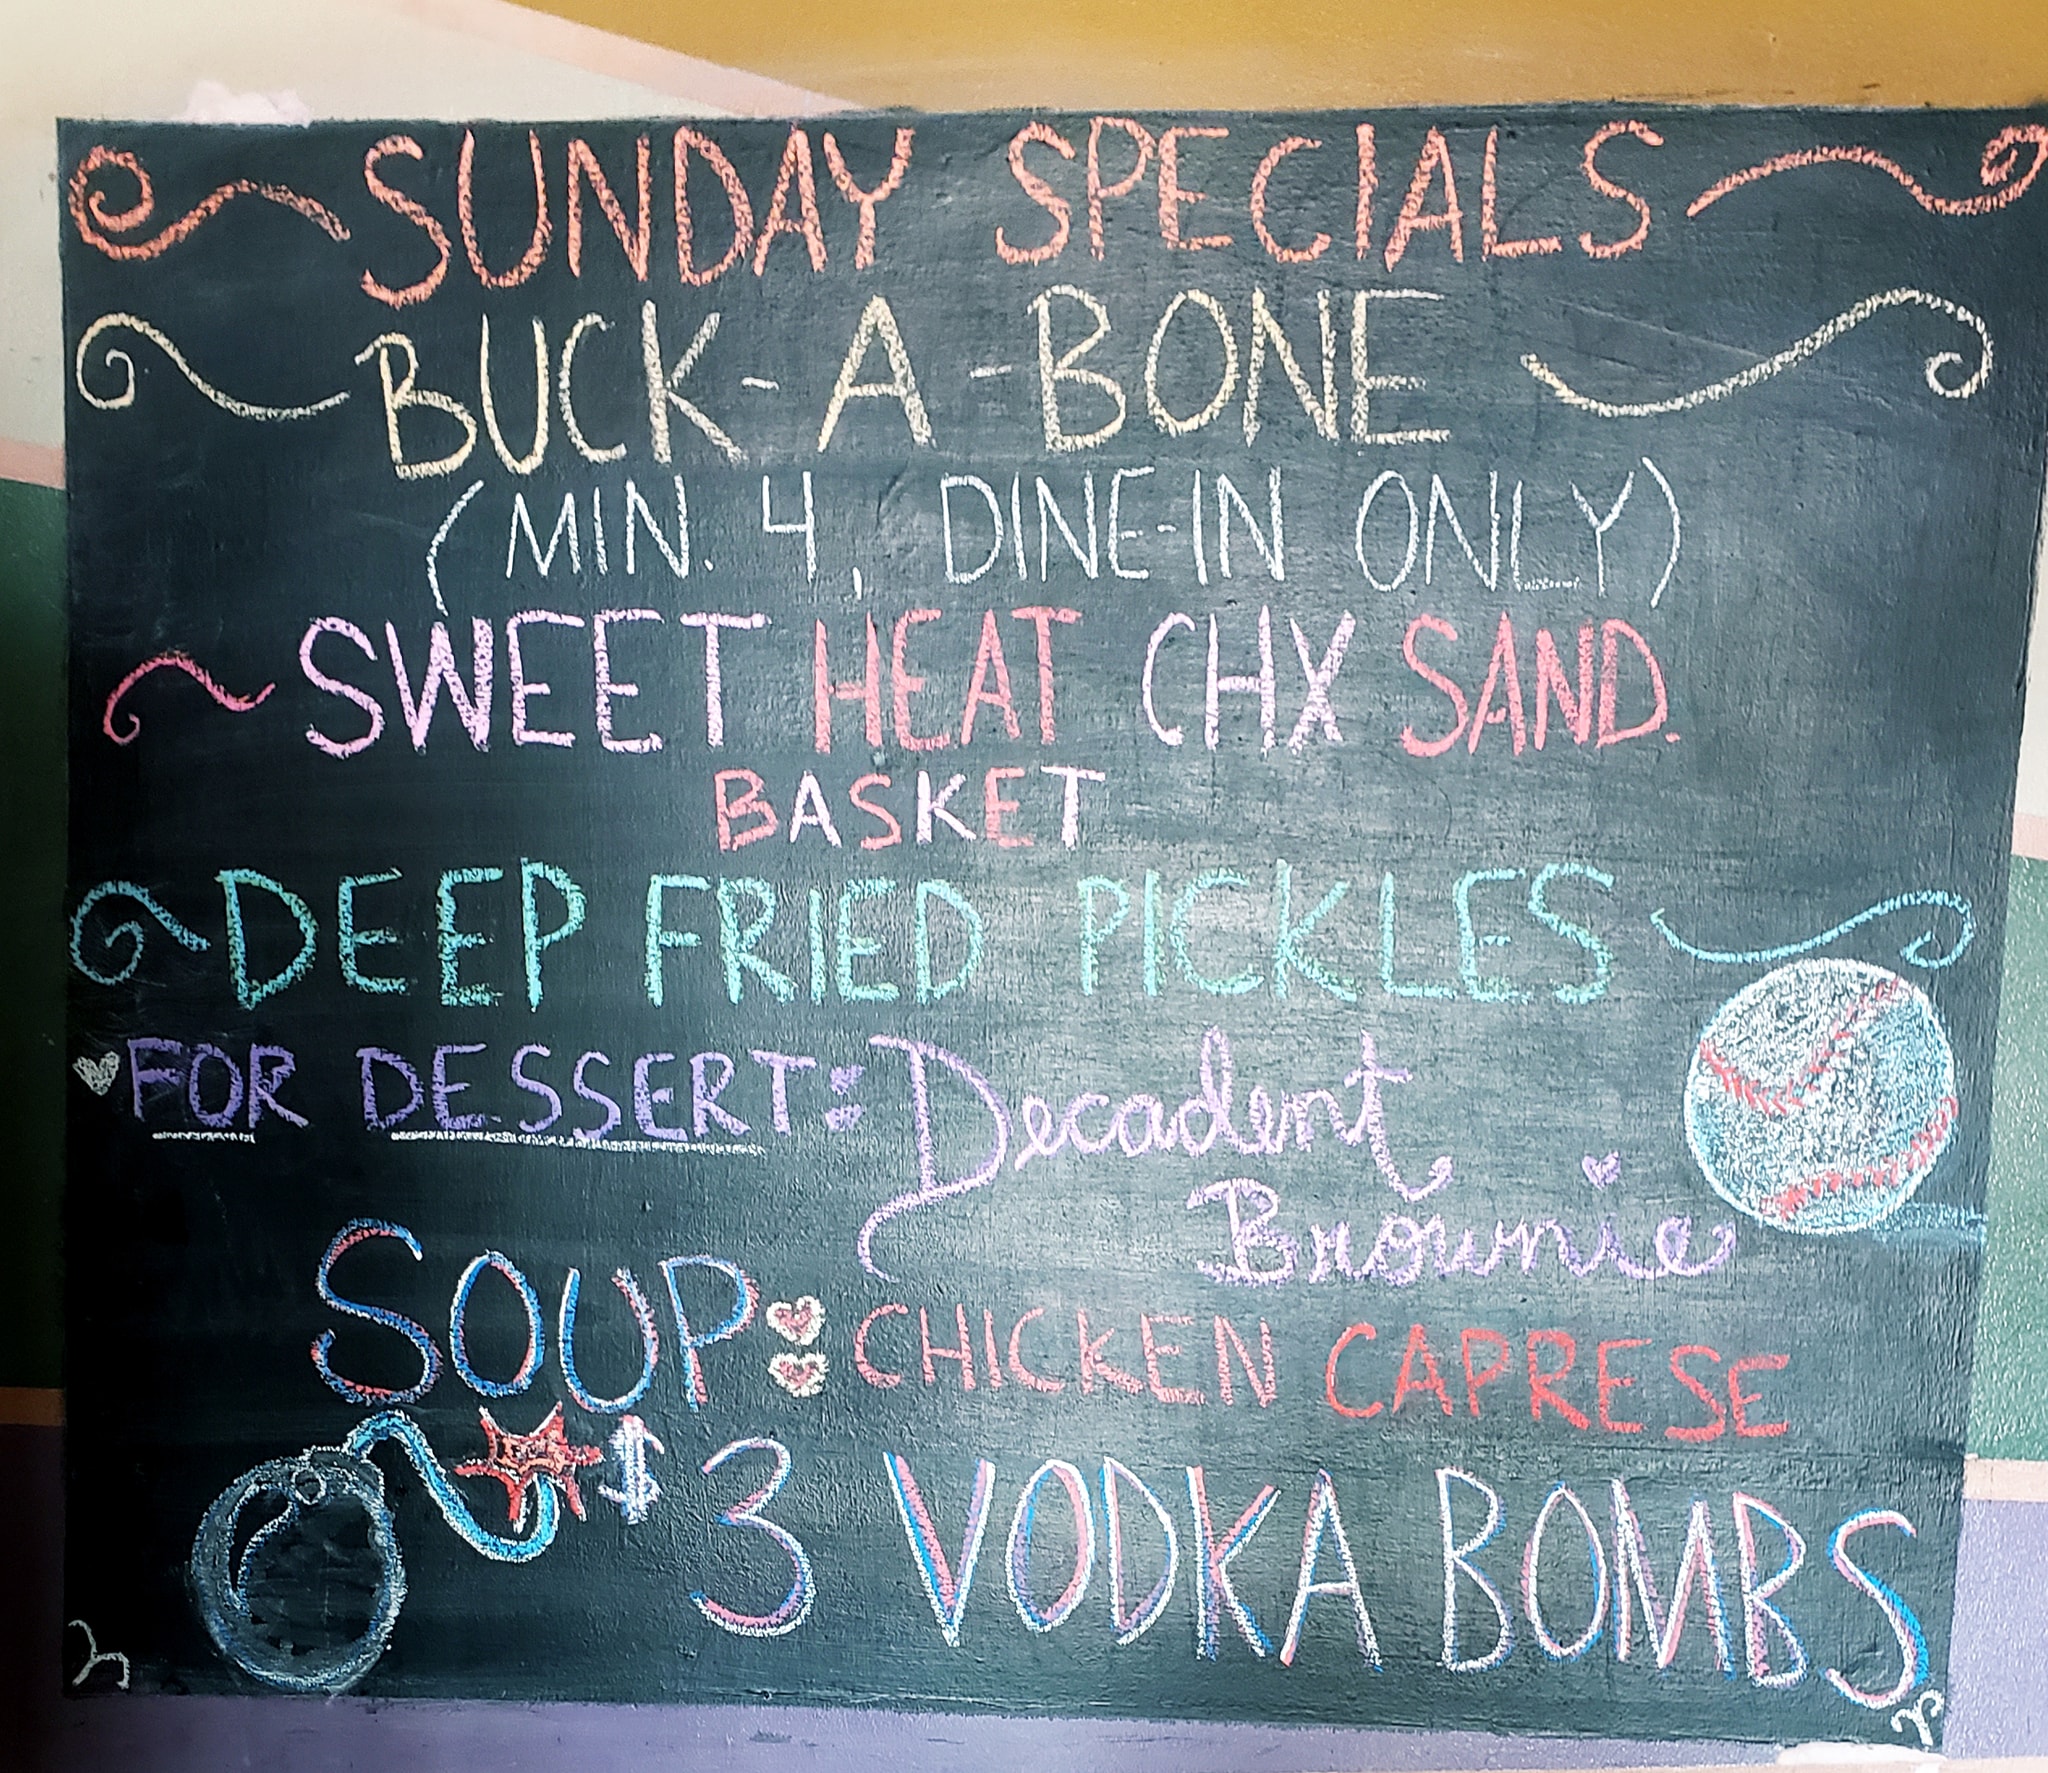 SUNDAY SPECIALS
BUCK-A-BONE
(MIN. 4, DINE-IN ONLY)
SWEET HEAT CHX SAND.
BASKET
DEEP FRIED PICKLES
FOR DESSERT: Decadent
Brownie
SOUP: CHICKEN CAPRESE
$3 VODKA BOMBS